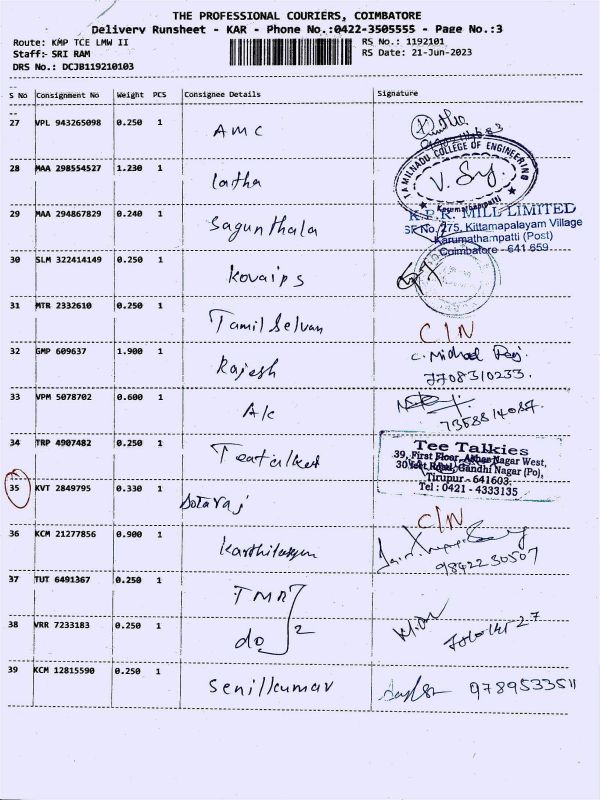 THE PROFESSIONAL COURIERS, COIMBATORE
Delivery Runsheet - KAR - Phone No.:0422-3505555 - Page No.:3
Route: KMP TCE LMW II
RS No.: 1192101
Staff:- SRI RAM
RS Date: 21-Jun-2023
DRS No.: DCJB119210103
S No Consignment No Weight PCS Consignee Details Signature
27 VPL 943265098 0.250 1 AMC
28 MAA 298554527 1.230 1 latha
TAMILNADU COLLEGE OF ENGINEERING
Karumathampatti
29 MAA 294867829 0.240 1 Sagunthala
K.P.R. MILL LIMITED
SF No. 275, Kittamapalayam Village
Karumathampatti (Post)
Coimbatore - 641 659
30 SLM 322414149 0.250 1 Kovaips
31 MTR 2332610 0.250 1 Tamil Selvan C/N
32 GMP 609637 1.900 1 Rajesh C. Michael Raj
7708310233.
33 VPM 5078702 0.600 1 A/c
34 TRP 4907482 0.250 1
Tee Talkies
39, First Floor, Akbar Nagar West,
30 feet Road, Gandhi Nagar (Po),
Tirupur - 641603.
Tel : 0421 - 4333135
35 KVT 2849795 0.330 1 C/N
36 KCM 21277856 0.900 1
9842230507
37 TUT 6491367 0.250 1 TMR
38 VRR 7233183 0.250 1 do 2
39 KCM 12815590 0.250 1 Senilkumar 9789533511